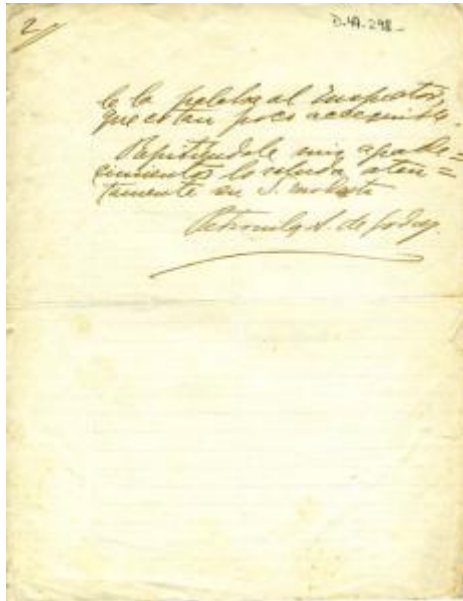 2
D-49-298-
le la palabra al Inspector,
que es tan poco accequible.
Repitiéndole mis agrade=
cimientos lo saluda aten=
tamente su S.
Petronila S. de Godoy.